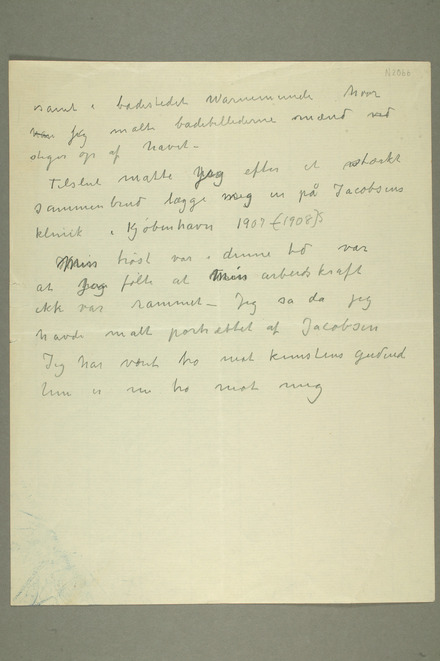 N1066
samt i badestedet Warnemünde hvor
jeg malte badebillederne mænd ved
stiger op af havet –
Tilslut måtte jeg efter et stærkt
sammenbrud lægge meg in på Jacobsens
klinik i Kjøbenhavn 1907 (1908)
Min trøst var i denne tid var
at jeg følte at min arbeidskraft
ikk var rammet – Jeg sa da jeg
havde malt portrættet af Jacobsen
Jeg har vært tro mot kunstens gudind
hun er nu tro mot mig